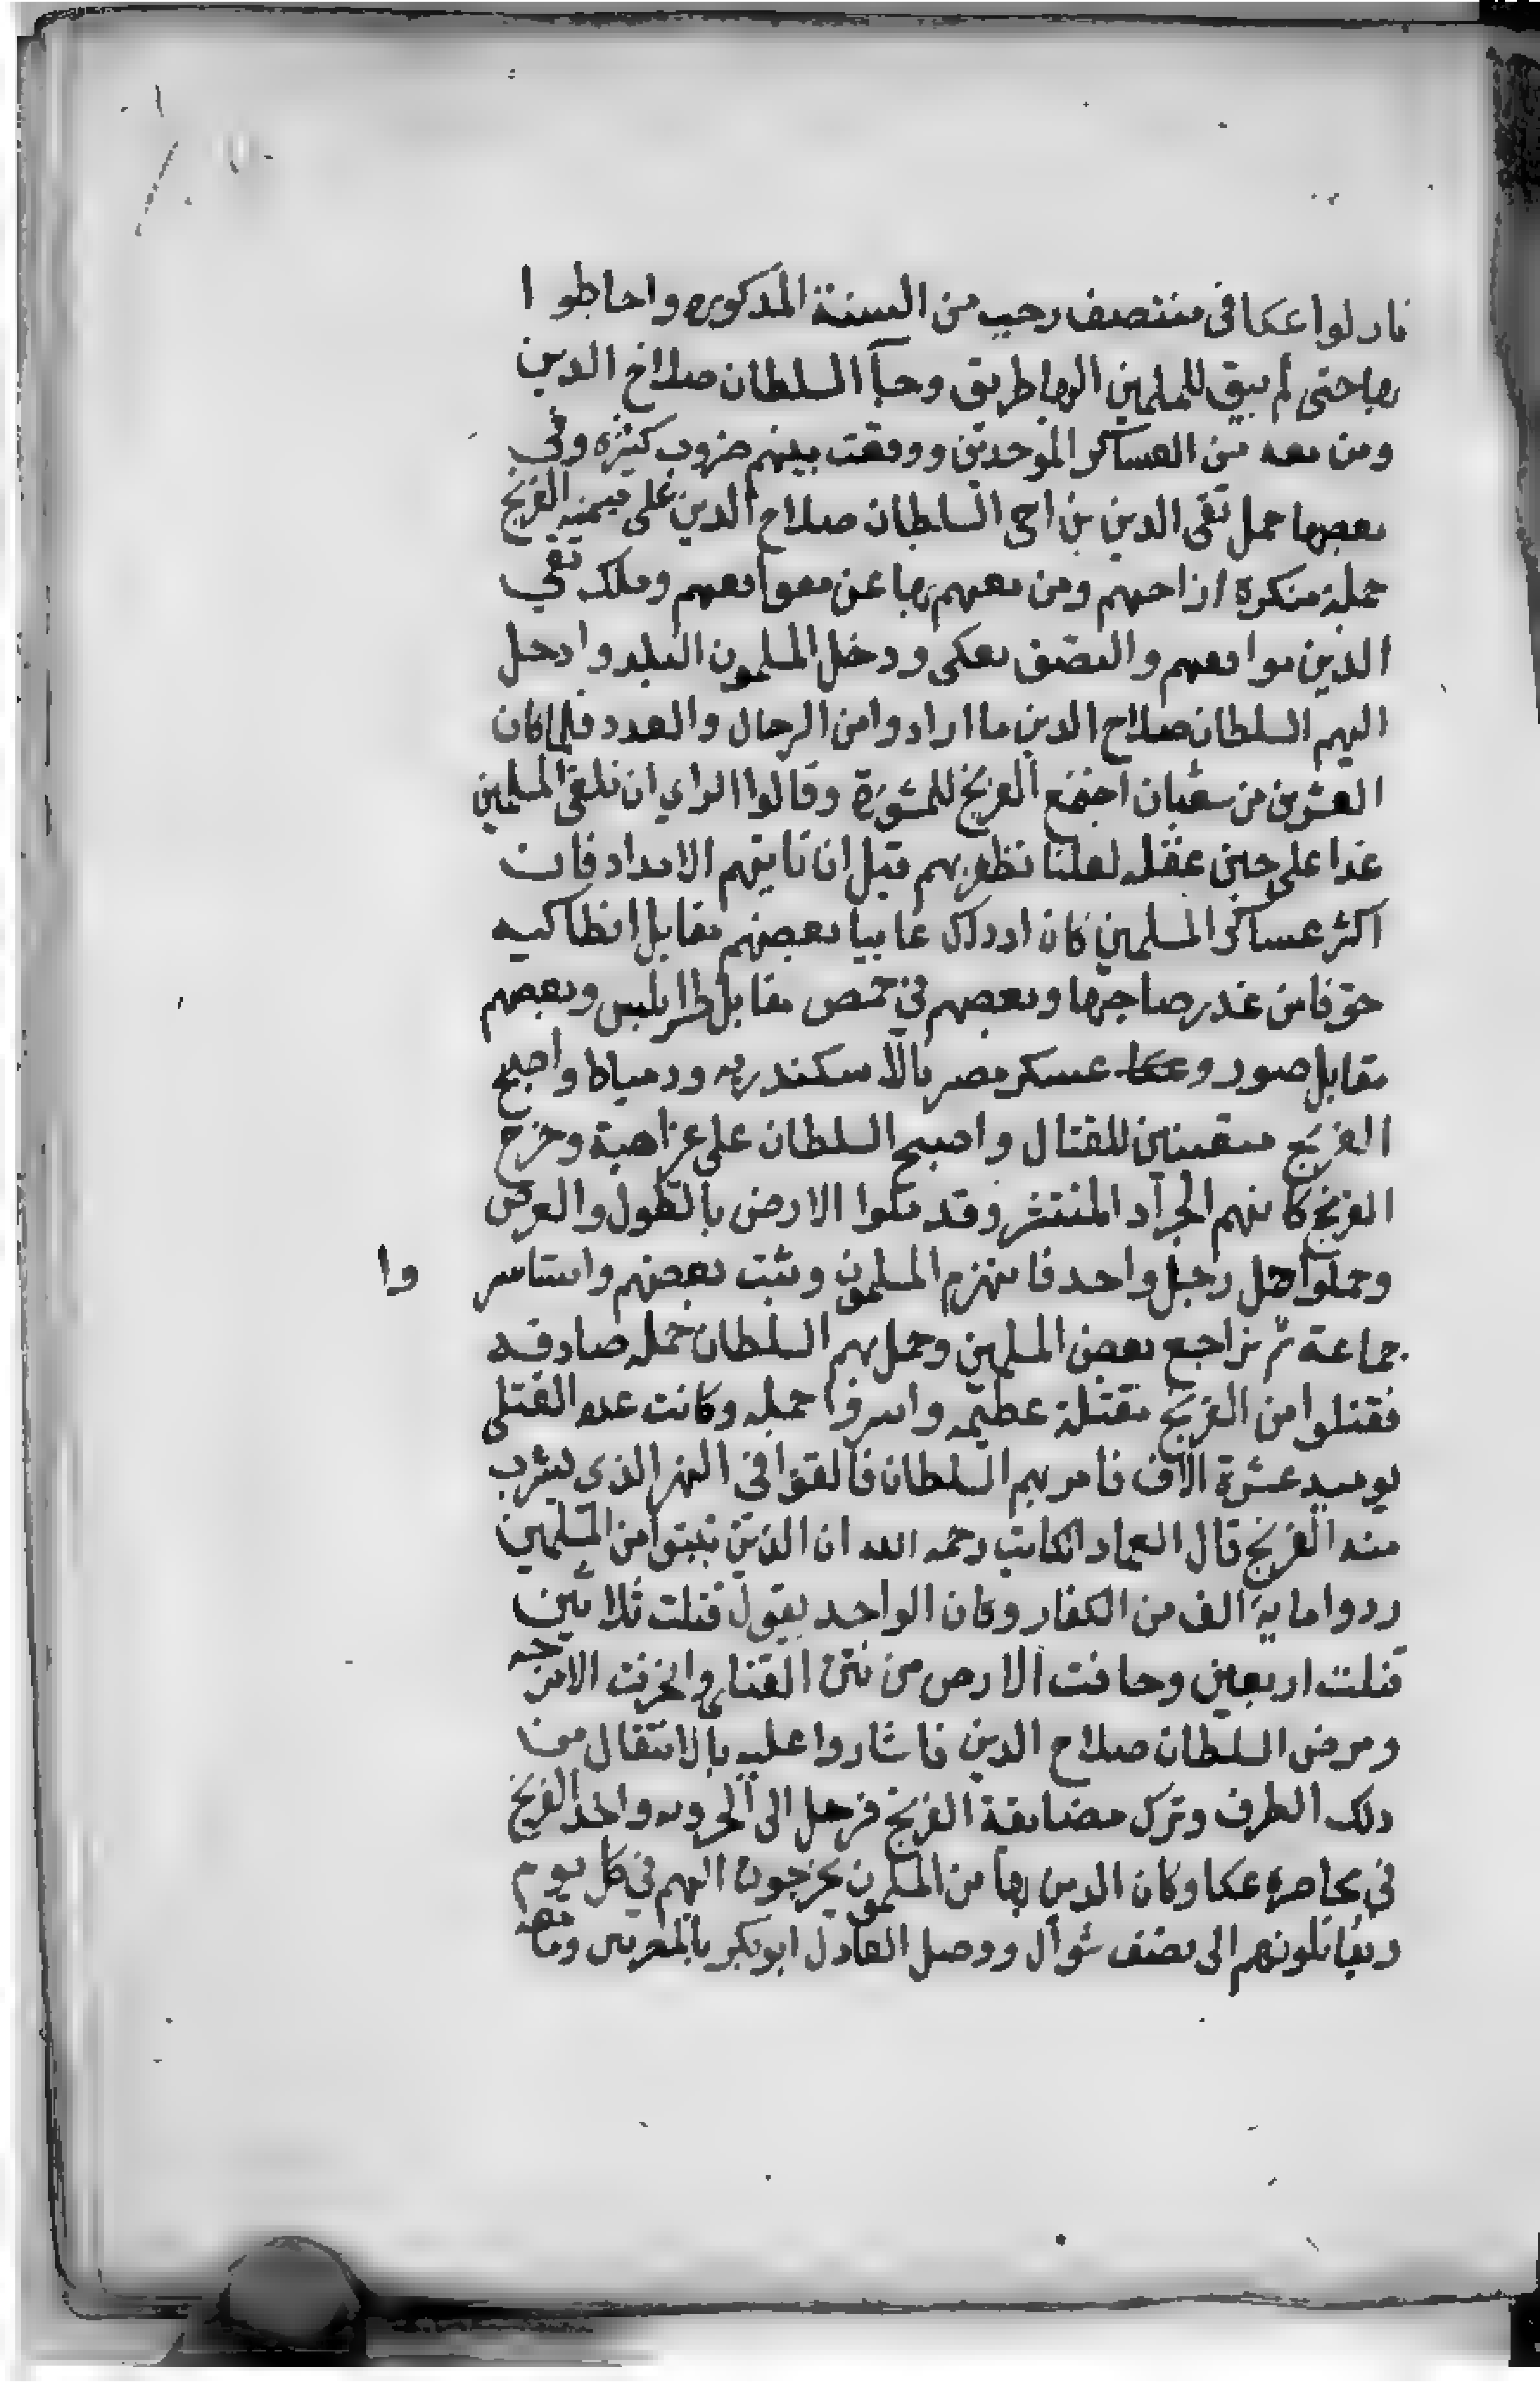 نازلوا عكا فى منتصف رجب من السنة المذكوره واحاطوا
بها حتى لم يبق للمسلمين اليها طريق وجآ السلطان صلاح الدين
ومن معه من العساكر الموحدين ووقعت بينهم حروب كثيرة وفي
بعضها حمل تقى الدين بن اخى السلطان صلاح الدين على ميمنه الفرنج
حملة منكرة ازاحهم ومن معهم بها عن مواقعهم وملك تقي
الدين مواقعهم والتصق بعكى ودخل المسلمون البلد وادخل
اليهم السلطان صلاح الدين ما ارادوا من الرجال والعدد فلما كان
العشرين من شعبان اجتمع الفرنج للمشورة وقالوا الراي ان نلقى المسلمين
غدا على حين غفله لعلنا نظفر بهم قبل ان تاتيهم الامداد فان
اكثر عساكر المسلمين كان اذ ذاك غايبا بعضهم مقابل انطاكيه
خوفا من غدر صاحبها وبعضهم في حمص مقابل طرابلس وبعضهم
مقابل صور وعكا عسكر مصر بالاسكندريه ودمياط واصبح
الفرنج للقتال واصبح السلطان على غير اهبة وخرج
الفرنج كانهم الجراد المنتشر وقد ملوا الارض بالطول والعرض
وحملوا حمل رجل واحد فانهزم المسلمون وثبت بعضهم واستاسروا
جماعة ثم تراجع بعض المسلمين وحمل بهم السلطان حمله صادقه
فقتلوا من الفرنج مقتلة عظيمه واسروا جمله وكانت عده القتلى
يوميد عشرة الاف فامر بهم السلطان فالقوا في النهر الذى يشرب
منه الفرنج قال العماد الكاتب رحمه الله ان الذين ثبتوا من المسلمين
ردوا ماية الف من الكفار وكان الواحد يقول قتلت ثلاثين
قتلت اربعين وجافت الارض من نتن القتلى وانحرفت الامزجه
ومرض السلطان صلاح الدين فاشاروا عليه بالانتقال من
ذلك الطرف وترك مضايقة الفرنج فرحل الى الخروبه واخذ الفرنج
في محاصرة عكا وكان الذين بها من المسلمون يخرجون اليهم في كل يوم
ويقاتلونهم الى نصف شوال ووصل العادل ابو بكر بالمصريين ومعه